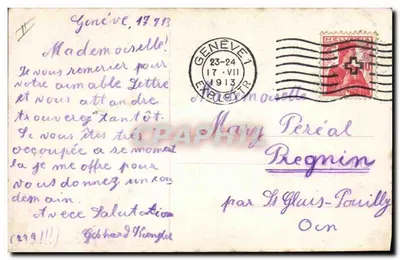 Genève, 17.7.13
Mademoiselle!
Je vous remerier pour
votre aimable Lettre
et vous attandre
trouverez tantôt.
Si vous êtes très
occoupée a se moment
la je me offre pour
vous donnez un cou
demain.
Avece Salutation
GENÈVE 1
23-24
17·VII
1913
HELVETIA
Mademoiselle
Mary Péréal
Pregnin
par St Genis-Pouilly
Ain